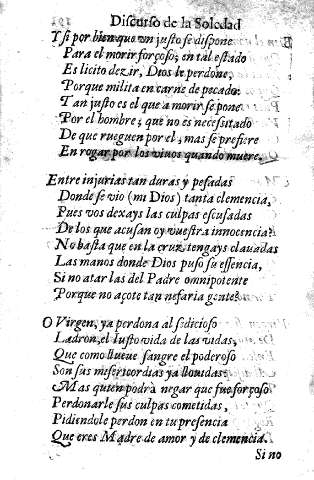 Discurso de la Soledad
Y si por bien que un justo se dispone
Para el morir forçoso, en tal estado
Es licito dezir, Dios le perdone,
Porque milita en carne de pecado:
Tan justo es el que a morir se pone
Por el hombre, que no es necessitado
De que rueguen por el, mas se prefiere
En rogar por los viuos quando muere.
Entre injurias tan duras y pesadas
Donde se vio (mi Dios) tanta clemencia,
Pues vos dexays las culpas escusadas
De los que acusan oy vuestra innocencia?
No basta que en la cruz tengays clauadas
Las manos donde Dios puso su essencia,
Si no atar las del Padre omnipotente
Porque no açote tan nefaria gente?
O Virgen, ya perdona al sedicioso
Ladron, el Iusto vida de las vidas,
Que como llueue sangre el poderoso
Son sus misericordias ya llouidas:
Mas quien podrà negar que fue forçoso
Perdonarle sus culpas cometidas,
Pidiendole perdon en tu presencia
Que eres Madre de amor y de clemencia.
Si no